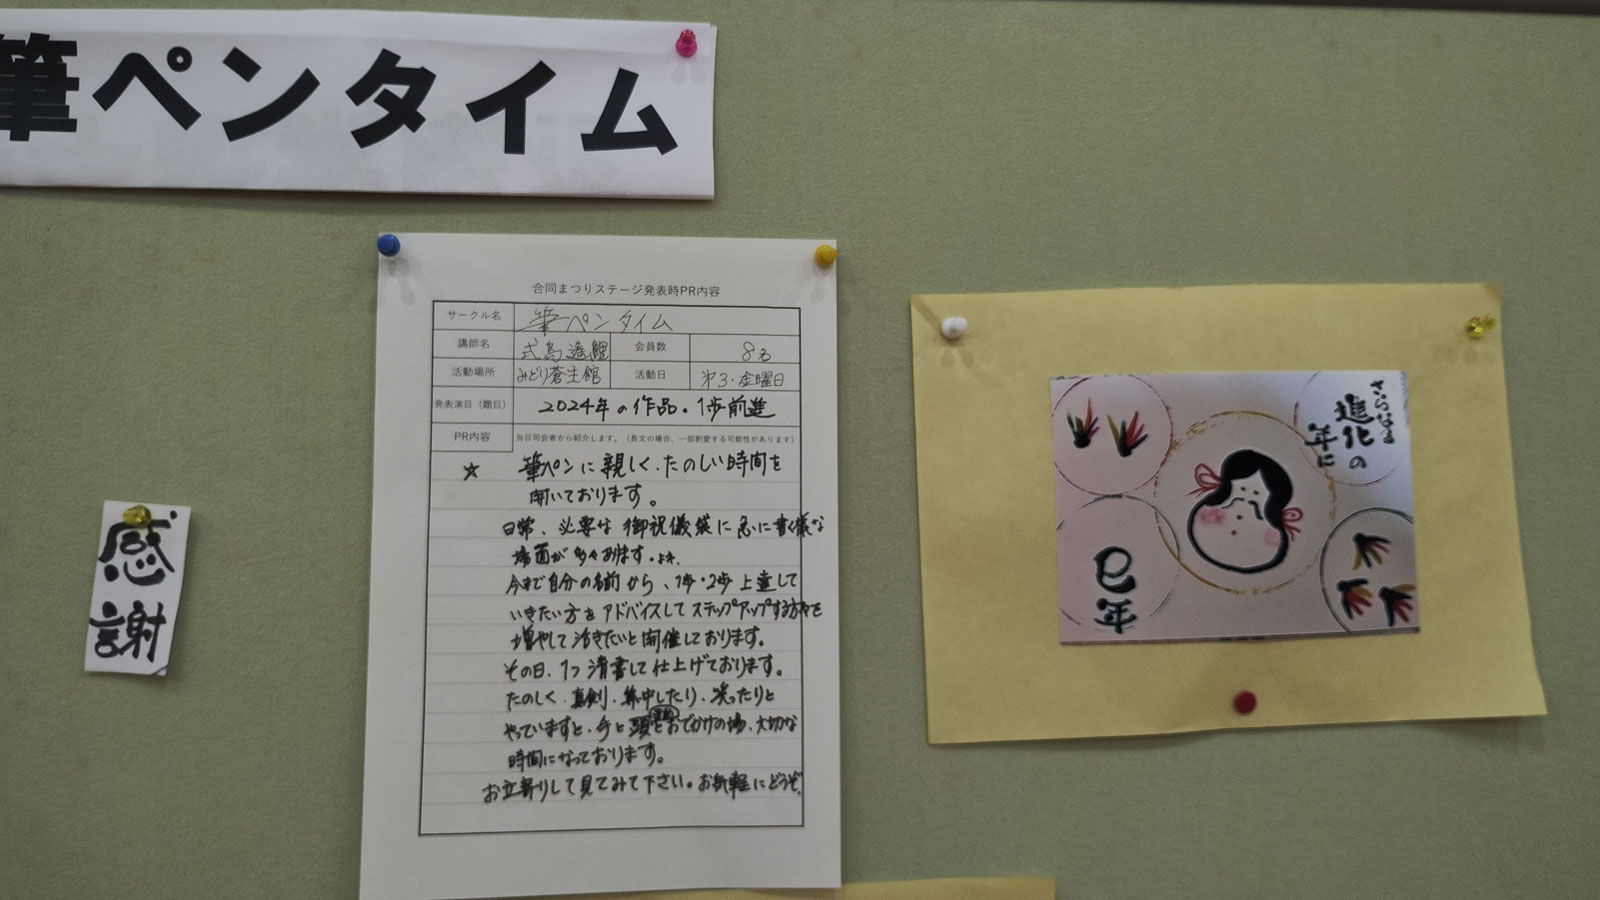 筆ペンタイム
合同まつりステージ発表時PR内容
サークル名 筆ペンタイム
講師名 式島遙鯉 会員数 8名
活動場所 みどり蒼生館 活動日 第3・金曜日
発表演目（題目） 2024年の作品。1歩前進
PR内容 当日司会者から紹介します。（長文の場合、一部割愛する可能性があります）
☆ 筆ペンに親しく、たのしい時間を
開いております。
日常、必要な御祝儀袋に急に書く様な
場面が多々あります。
今まで自分の名前から、1歩・2歩上達して
いきたい方をアドバイスしてステップアップする方々を
増やして活きたいと開催しております。
その日、1つ清書して仕上げております。
たのしく、真剣、集中したり、笑ったりと
やっていますと、手と頭とおでかけの場、大切な
時間になっております。
お立寄りして見てみて下さい。お気軽にどうぞ。
感謝
さらなる
進化の
年に
巳年